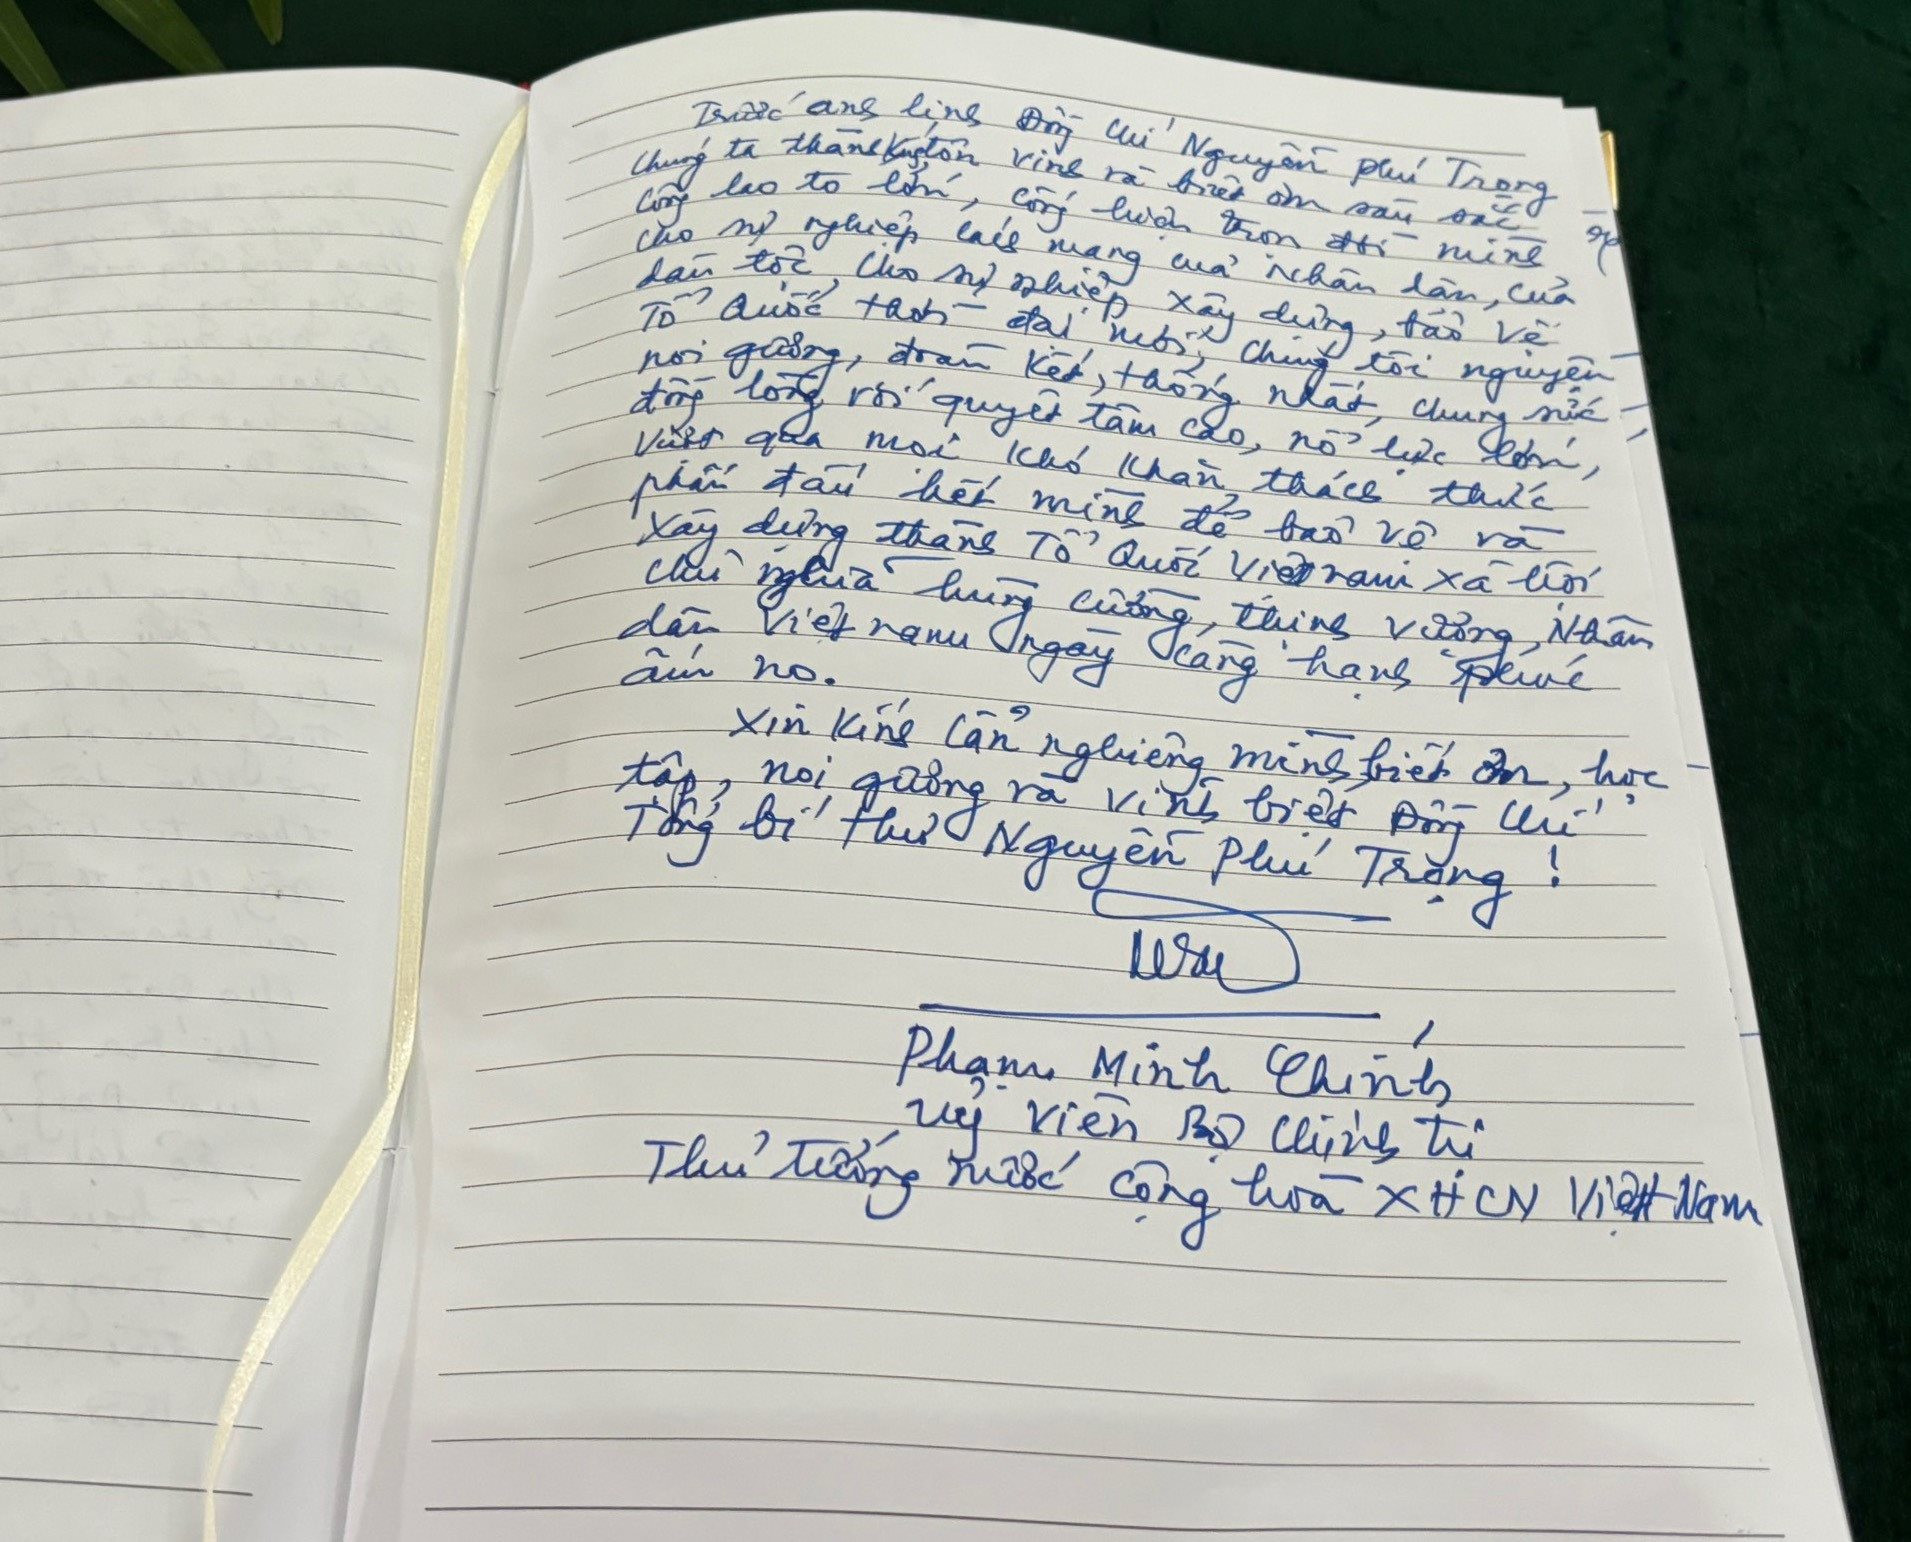 Trước anh linh Đồng chí Nguyễn Phú Trọng
chúng ta thành kính, tôn vinh và biết ơn sâu sắc
công lao to lớn, cống hiến trọn đời mình
cho sự nghiệp cách mạng của nhân dân, của
dân tộc, cho sự nghiệp xây dựng, bảo vệ
Tổ Quốc thời đại mới, chúng tôi nguyện
noi gương, đoàn kết, thống nhất, chung sức
đồng lòng với quyết tâm cao, nỗ lực lớn,
vượt qua mọi khó khăn thách thức
phấn đấu hết mình để bảo vệ và
xây dựng thành Tổ Quốc Việt nam xã hội
chủ nghĩa hùng cường, thịnh vượng, Nhân
dân Việt nam ngày càng hạnh phúc
ấm no.
Xin kính cẩn nghiêng mình, biết ơn, học
tập, noi gương và vĩnh biệt Đồng chí
Tổng bí thư Nguyễn Phú Trọng!
Phạm Minh Chính
Uỷ viên Bộ Chính trị
Thủ tướng nước Cộng hoà XHCN Việt Nam